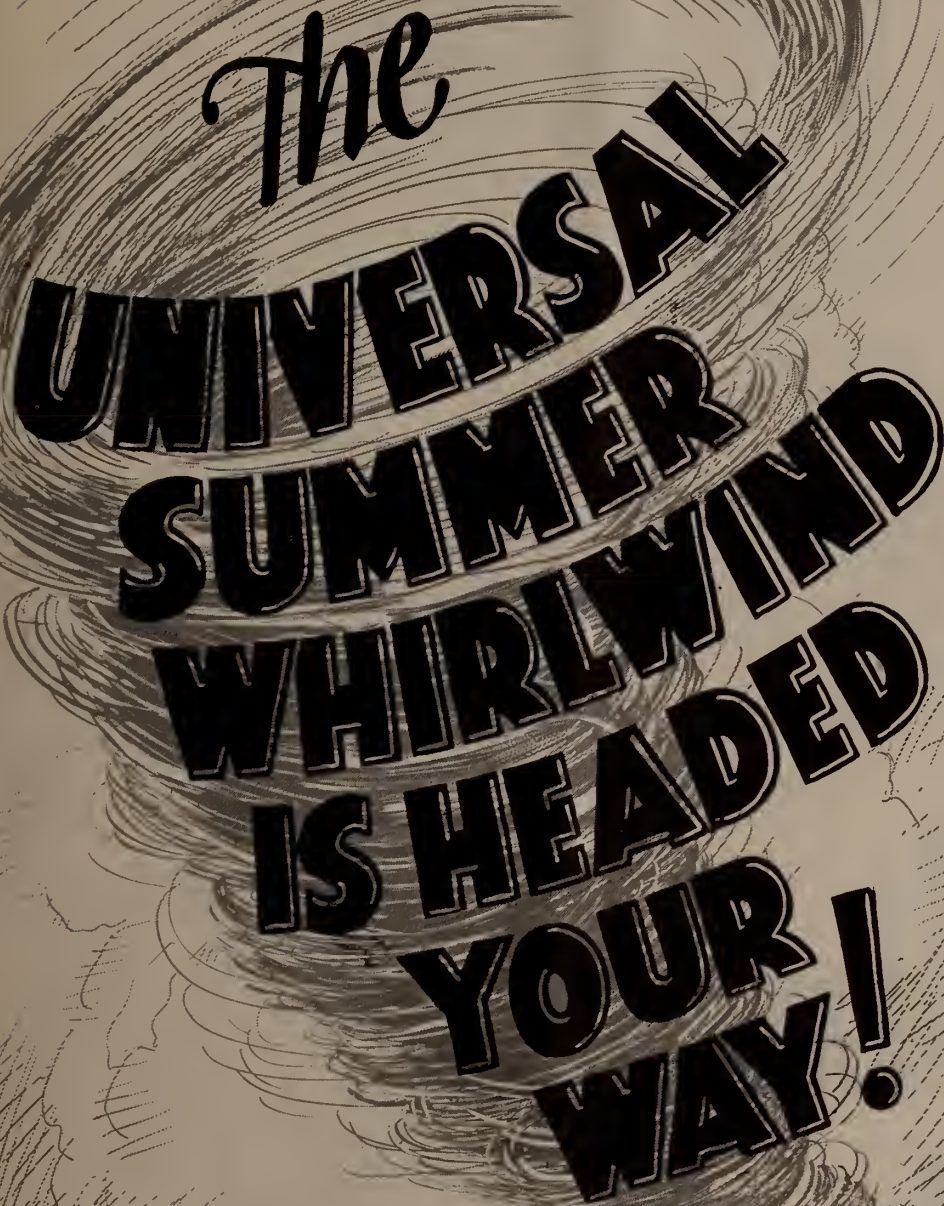 The
UNIVERSAL
SUMMER
WHIRLWIND
IS HEADED
YOUR
WAY!